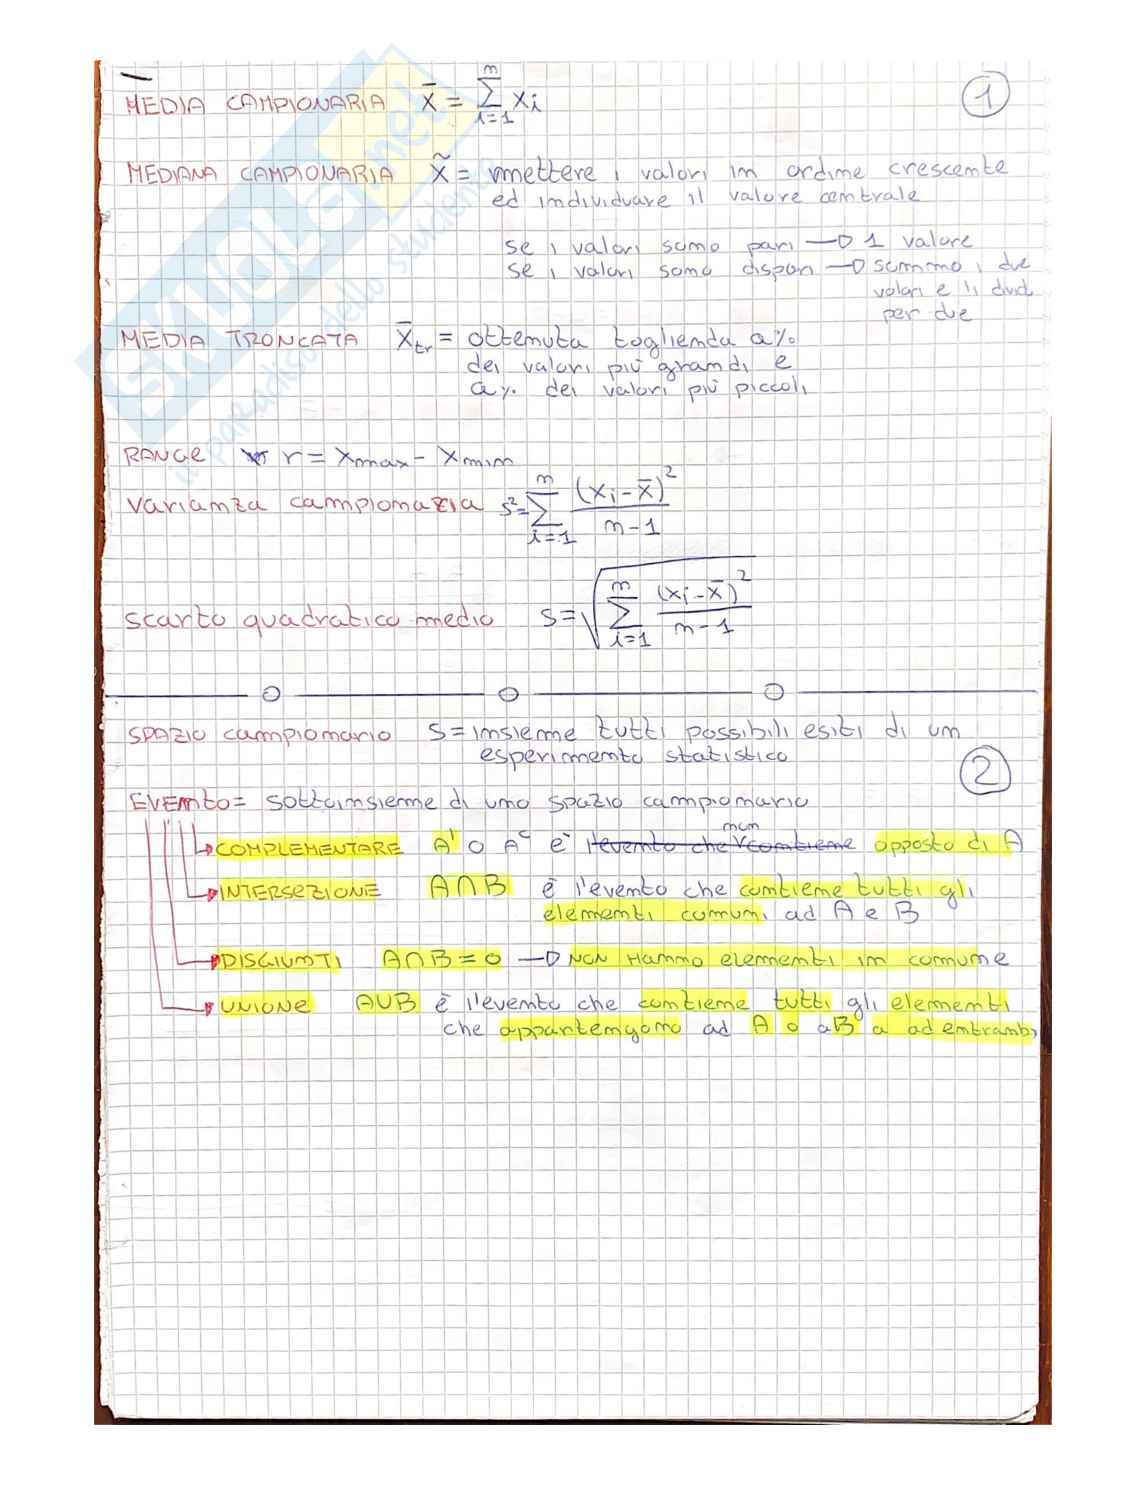 MEDIA CAMPIONARIA x̄ = Σ_{i=1}^{n} xi
1
MEDIANA CAMPIONARIA x̃ = mettere i valori in ordine crescente
ed individuare il valore centrale
se i valori sono pari → 1 valore
se i valori sono dispari → sommo i due
valori e li divid
per due
MEDIA TRONCATA x̄tr = ottenuta togliendo a%
dei valori più grandi e
a% dei valori più piccoli
RANGE r = xmax - xmin
varianza campionaria s² = Σ_{i=1}^{n} (xi - x̄)² / n-1
scarto quadratico medio s = √ Σ_{i=1}^{n} (xi - x̄)² / n-1
SPAZIO campionario S = insieme tutti possibili esiti di un
esperimento statistico
2
EVENTO = sottoinsieme di uno spazio campionario
COMPLEMENTARE A' o Aᶜ è l'evento che non contiene opposto di A
INTERSEZIONE A∩B è l'evento che contiene tutti gli
elementi comuni ad A e B
DISGIUNTI A∩B = 0 → NON HANNO elementi in comune
UNIONE A∪B è l'evento che contiene tutti gli elementi
che appartengono ad A o a B o ad entrambi
SKUOLA.net
il paradiso dello studente